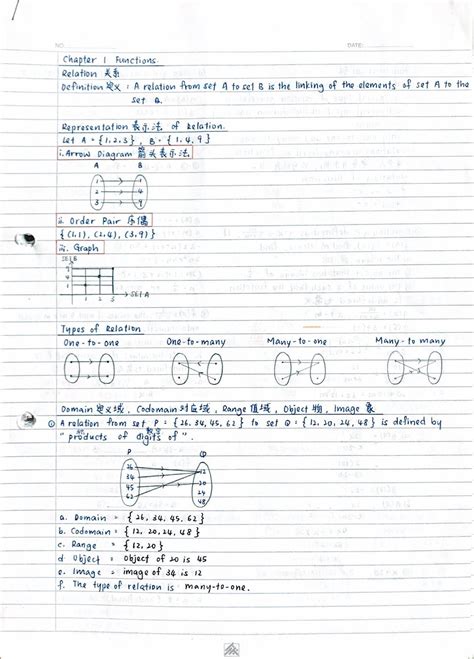 NO.
DATE:
Chapter 1 Functions
Relation 关系
Definition 定义 : A relation from set A to set B is the linking of the elements of set A to the
set B.
Representation 表示法 of Relation.
Let A = {1, 2, 3} , B = {1, 4, 9}
i. Arrow Diagram 箭头表示法
A B
1 1
2 4
3 9
ii. Order Pair 序偶
{(1,1), (2,4), (3,9)}
iii. Graph
SET B
9
4
1
1 2 3
SET A
Types of Relation
One-to-one One-to-many Many-to-one Many-to many
Domain 定义域, Codomain 对应域, Range 值域, Object 物, Image 象
① A relation from set P = {26, 34, 45, 62} to set Q = {12, 20, 24, 48} is defined by
数字
"products of digits of".
P Q
26 12
34 20
45 24
62 48
a. Domain = {26, 34, 45, 62}
b. Codomain = {12, 20, 24, 48}
c. Range = {12, 20}
d. Object = Object of 20 is 45
e. Image = image of 34 is 12
f. The type of relation is many-to-one.